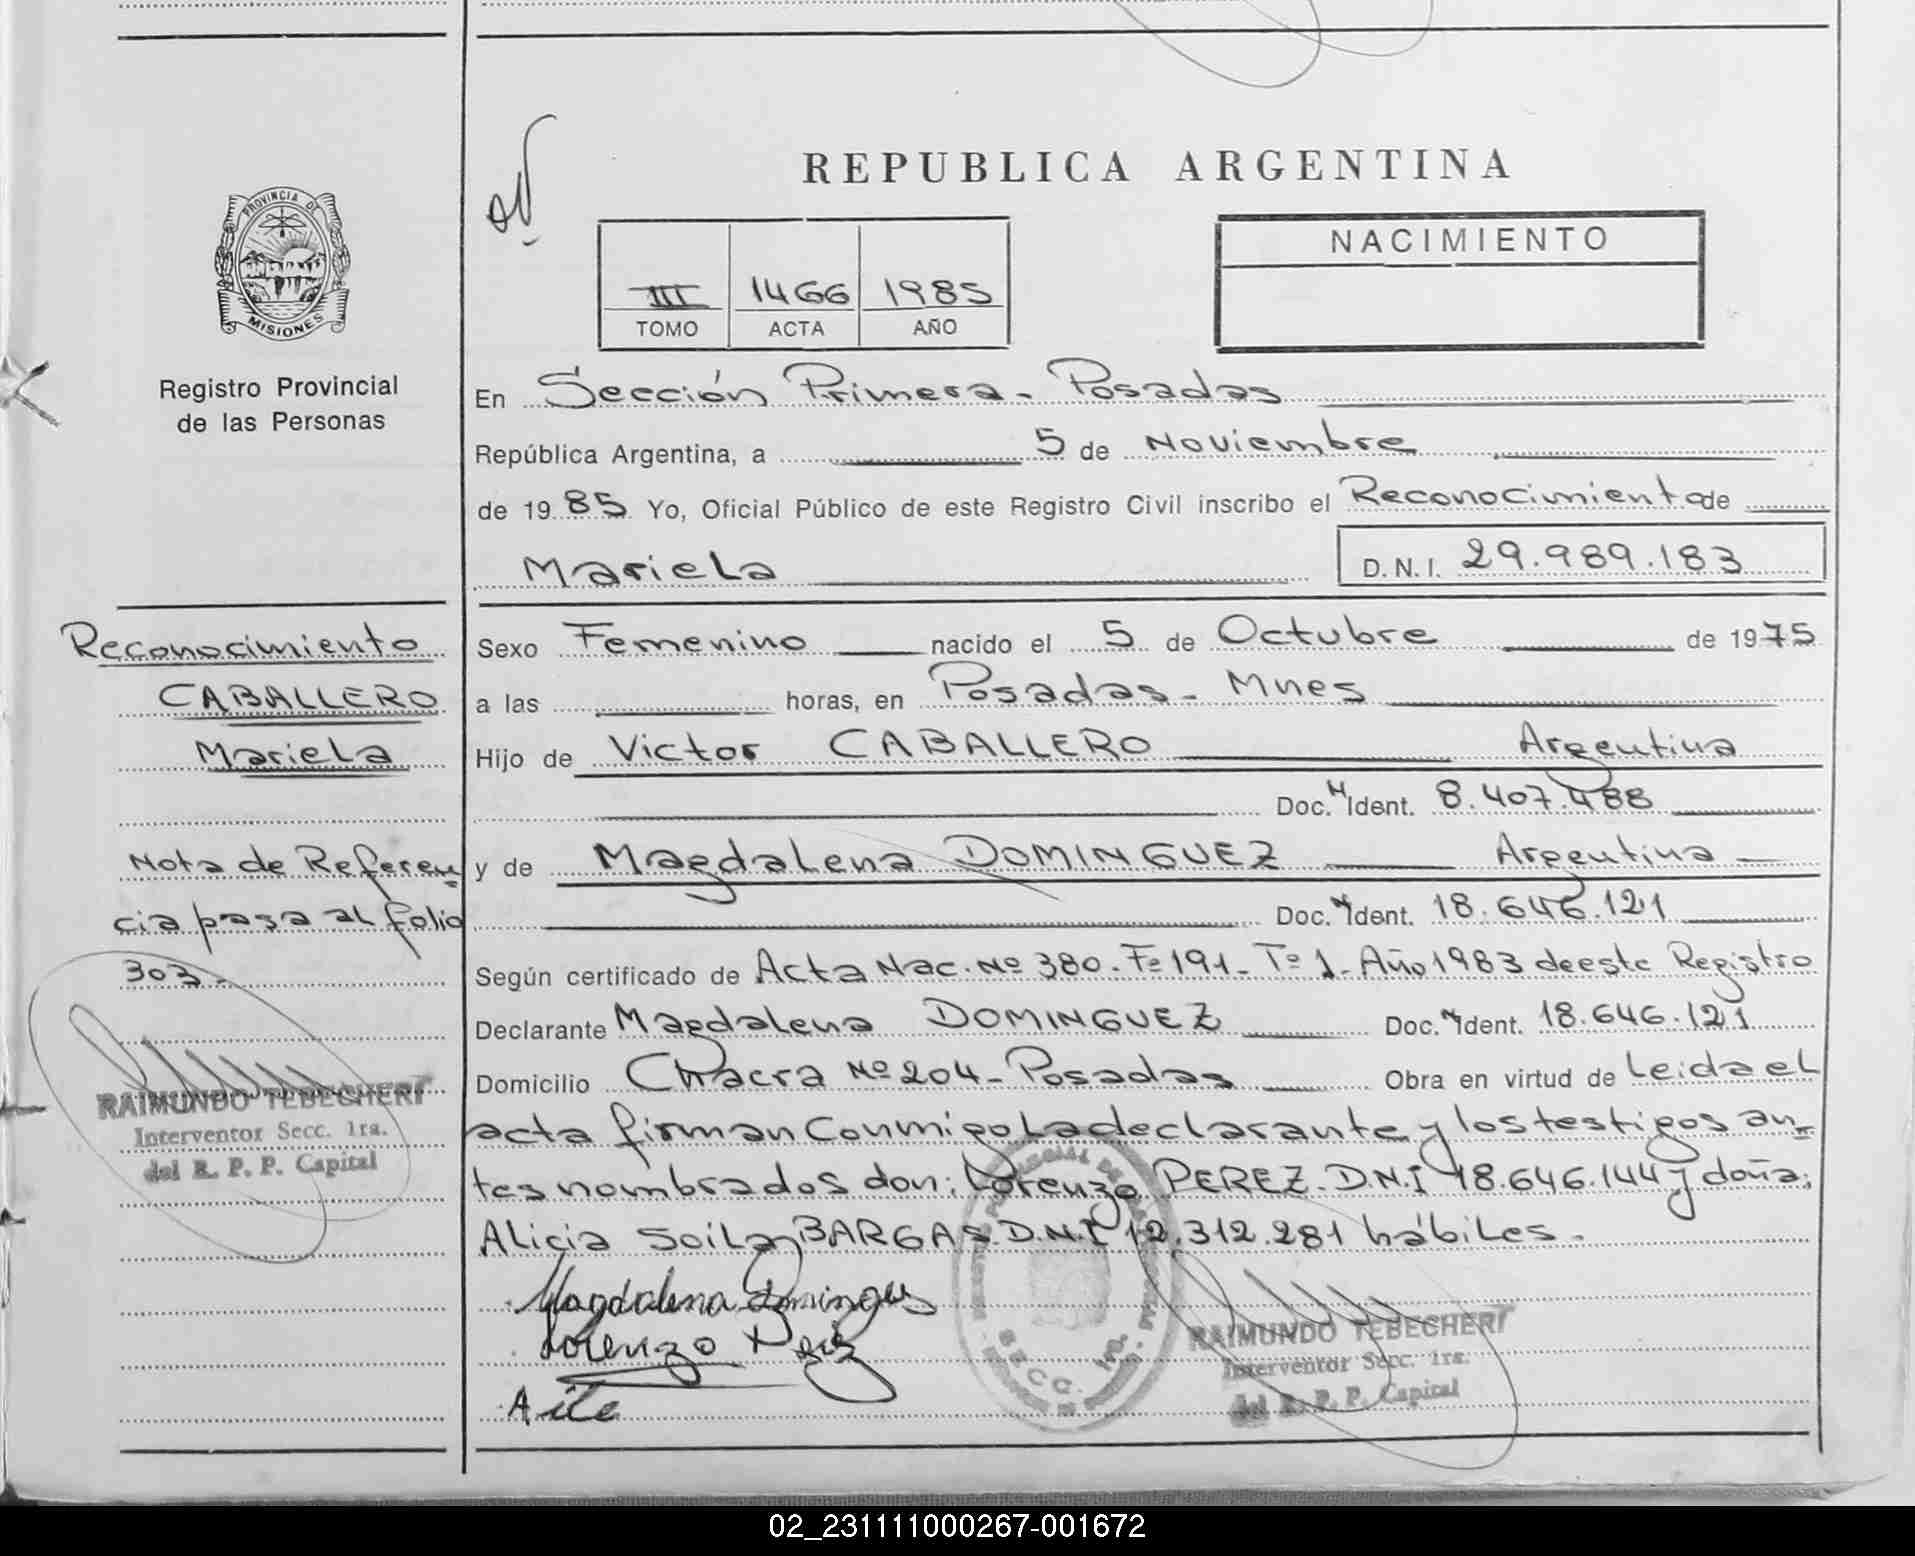 REPUBLICA ARGENTINA
PROVINCIA DE
MISIONES
Registro Provincial
de las Personas
III 1466 1985
TOMO ACTA AÑO
NACIMIENTO
En Sección Primera - Posadas
República Argentina, a 5 de Noviembre
de 1985 Yo, Oficial Público de este Registro Civil inscribo el Reconocimiento de
Mariela D.N.I. 29.989.183
Reconocimiento
CABALLERO
Mariela
Nota de Referen-
cia pasa al folio
303.
RAIMUNDO TEBECHERI
Interventor Secc. 1ra.
del R. P. P. Capital
Sexo Femenino nacido el 5 de Octubre de 1975
a las horas, en Posadas - Mnes
Hijo de Victor CABALLERO Argentina
Doc. M Ident. 8.407.488
y de Magdalena DOMINGUEZ Argentina
Doc. N Ident. 18.646.121
Según certificado de Acta Nac. Nº 380. Fº 191 - Tº 1 - Año 1983 de este Registro
Declarante Magdalena DOMINGUEZ Doc. N Ident. 18.646.121
Domicilio Chacra Nº 204 - Posadas Obra en virtud de Leida el
acta firman conmigo la declarante y los testigos an-
tes nombrados don; Lorenzo PEREZ. D.N.I 18.646.144 y doña;
Alicia Soila BARGAS. D.N.I 12.312.281 hábiles.
Magdalena Domingues
Lorenzo Perez
SECC. 1ra.
RAIMUNDO TEBECHERI
Interventor Secc. 1ra.
del R. P. P. Capital
02_231111000267-001672